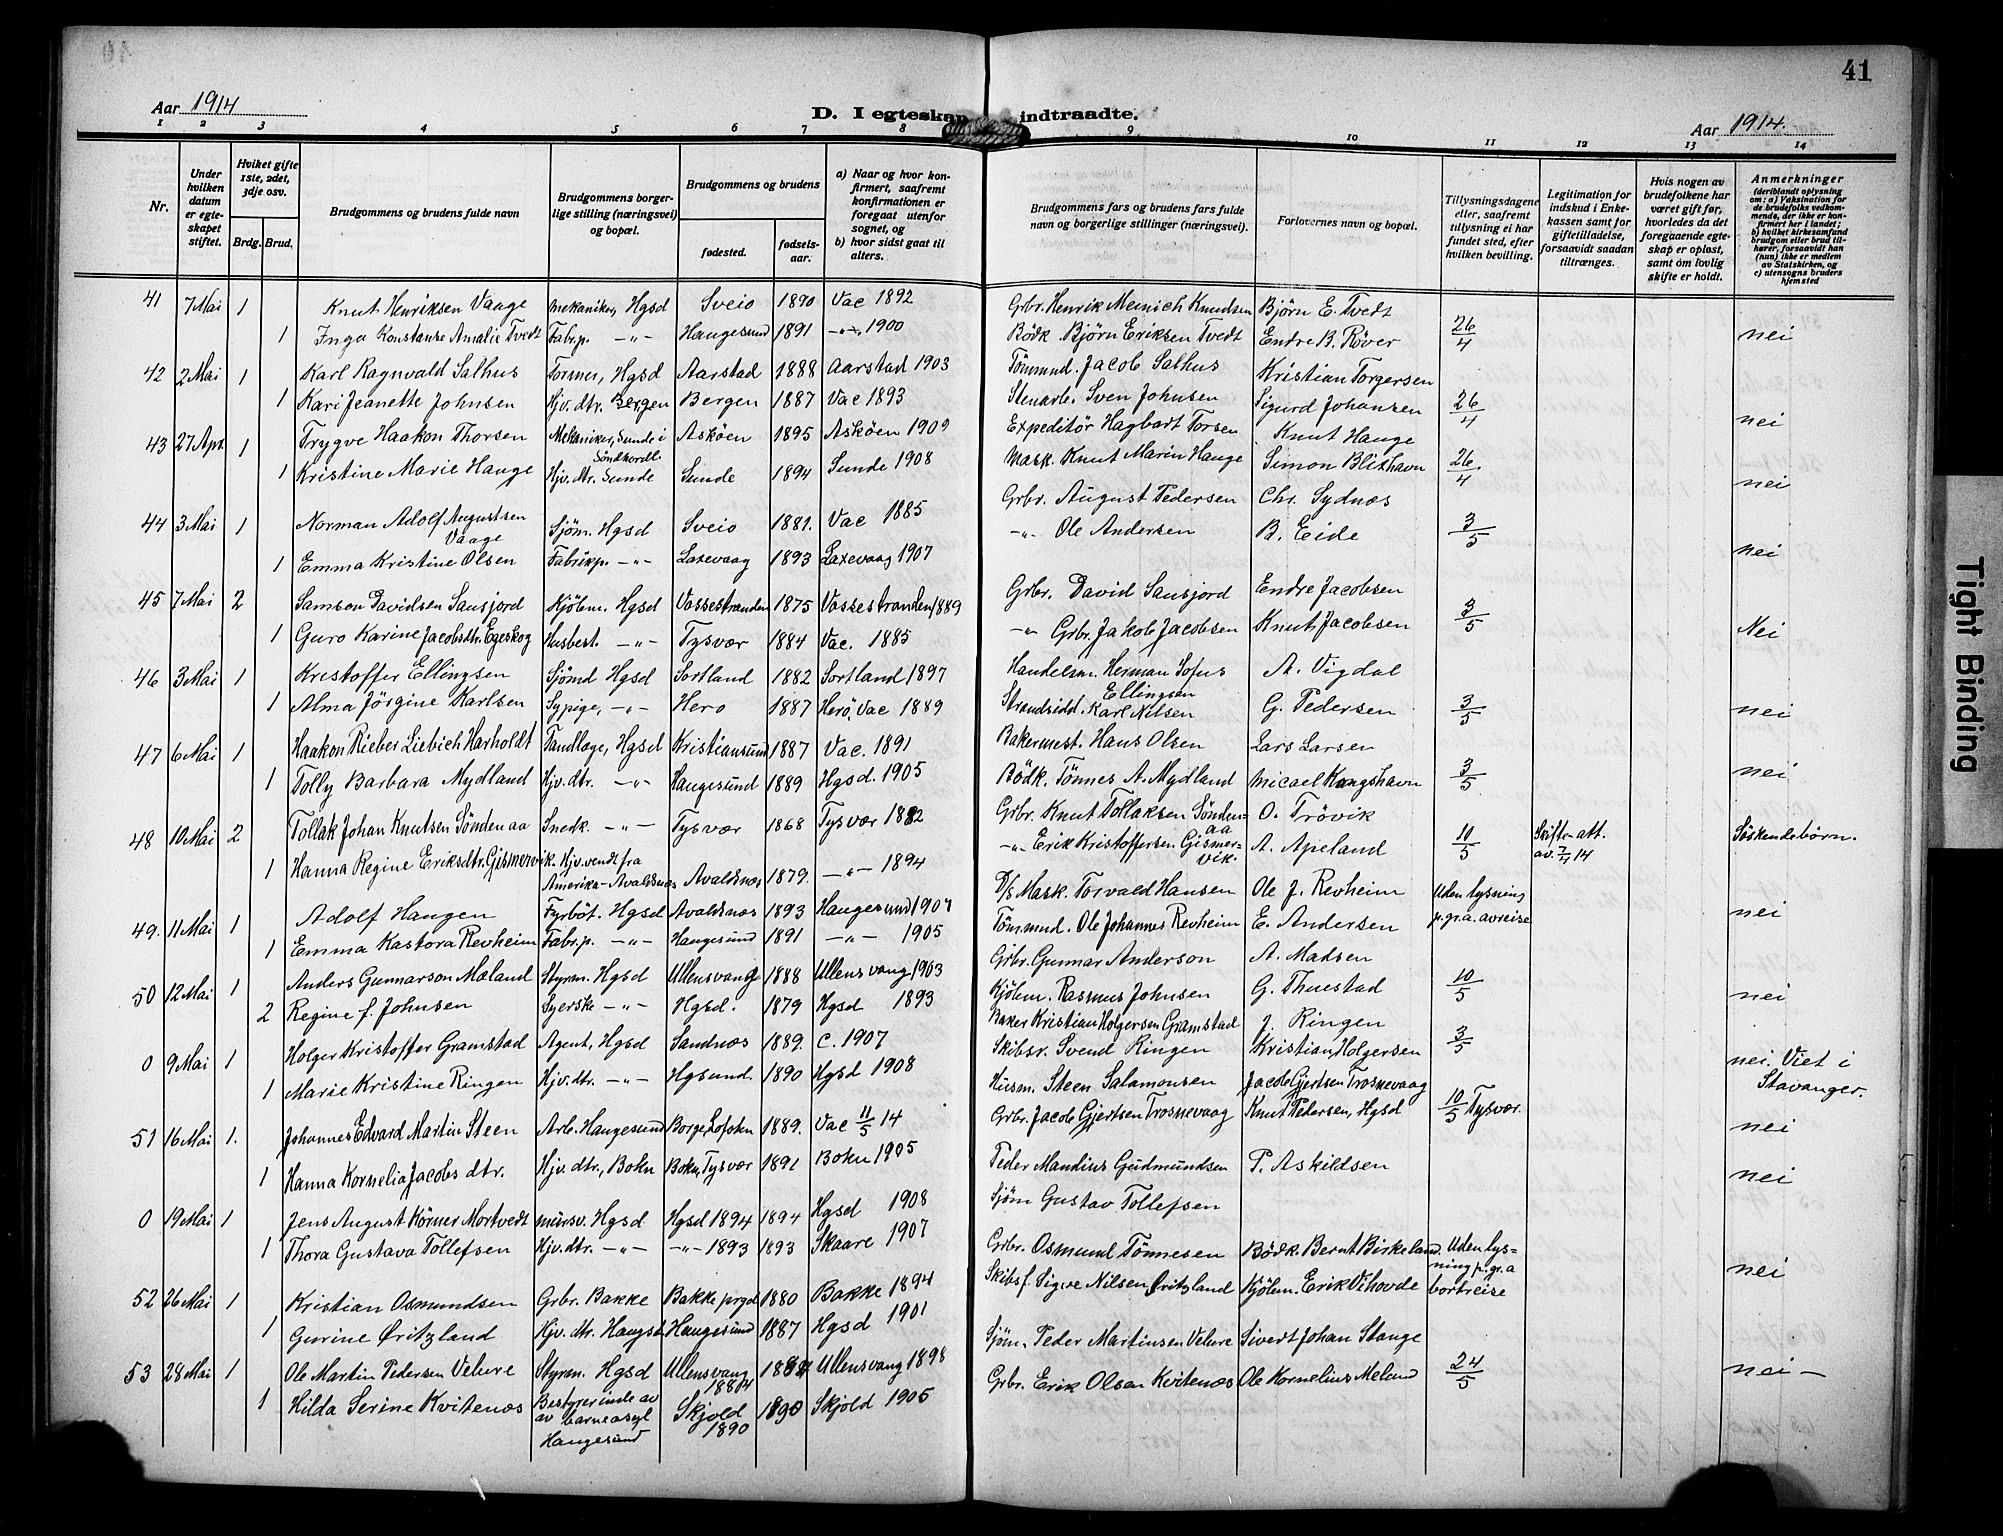 41
Aar 1914
D. I egteskap indtraadte.
Aar 1914.
1 2 3 4 5 6 7 8 9 10 11 12 13 14
Nr.
Under hvilken datum er egteskapet stiftet.
Hviket gifte 1ste, 2det, 3dje osv.
Brdg. Brud.
Brudgommens og brudens fulde navn
Brudgommens borgerlige stilling (næringsvei) og bopæl.
Brudgommens og brudens
fødested.
fødselsaar.
a) Naar og hvor konfirmert, saafremt konfirmationen er foregaat utenfor sognet, og b) hvor sidst gaat til alters.
Brudgommens fars og brudens fars fulde navn og borgerlige stillinger (næringsvei).
Forlovernes navn og bopæl.
Tillysningsdagene eller, saafremt tillysning ei har fundet sted, efter hvilken bevilling.
Legitimation for indskud i Enkekassen samt for giftetilladelse, forsaavidt saadan tiltrænges.
Hvis nogen av brudefolkene har været gift før, hvorledes da det foregaaende egteskap er opløst, samt om lovlig skifte er holdt.
Anmerkninger (deriblandt oplysning om: a) Vaksination for de brudefolks vedkommende, der ikke er konfirmert her i landet; b) hvilket kirkesamfund brudgom eller brud tilhører, forsaavidt han (hun) ikke er medlem av Statskirken, og c) utensogns bruders hjemsted
41 7 Mai 1 Knut Henriksen Vaage Mekaniker, Hgsd Sveio 1890 Vac 1892 Grbr. Henrik Meinich Knudsen Bjørn E. Tvedt
1 Inga Konstanse Amalie Tvedt Fabr.p. -"- Haugesund 1891 -"- 1900 Bödk. Bjørn Eriksen Tvedt Endre B. Röver 26/4 nei
42 2 Mai 1 Karl Ragnvald Salhus Former, Hgsd Aarstad 1888 Aarstad 1903 Tömmmd. Jacob Salhus Kristian Torgersen
1 Kari Jeanette Johnsen Hjv. dtr. Bergen Bergen 1887 Vac 1893 Stenarb. Sven Johnsen Sigurd Johansen 26/4 nei
43 27 Apr. 1 Trygve Haakon Thorsen Mekaniker, Sunde i Söndhordl. Asköen 1895 Asköen 1909 Expeditör Hagbart Torsen Knut Hauge
1 Kristine Marie Hauge Hjv. dtr. Sunde Sunde 1894 Sunde 1908 Mask. Knut Marin Hauge Simon Blixhavn 26/4 nei
44 3 Mai 1 Norman Adolf Augustsen Vaage Sjöm. Hgsd Sveio 1881. Vac 1885 Grbr. August Pedersen Chr. Sydnæs
1 Emma Kristine Olsen Fabrikp. -"- Laxevaag 1893 Laxevaag 1907 -"- Ole Andersen B. Eide 3/5 nei
45 7 Mai 2 Samson Davidsen Sausjord Kjölm. Hgsd Vossestranden 1875 Vossestranden 1889 Grbr. David Sausjord Endre Jacobsen
1 Guro Karine Jacobsdtr. Egeskog Husbest. -"- Tysvær 1884 Vac. 1885 -"- Grbr. Jakob Jacobsen Knut Jacobsen 3/5 Nei
46 3 Mai 1 Kristoffer Ellingsen Sjömd Hgsd Sortland 1882 Sortland 1897 Handelsm. Herman Sofus Ellingsen A. Vigdal
1 Alma Jörgine Karlsen Sypige, -"- Herö 1887 Herö, Vac 1889 Strandsidd. Karl Nilsen G. Pedersen 3/5 nei
47 6 Mai 1 Haakon Rieber Liebich Harholdt Tandlæge, Hgsd Kristiansund 1887 Vac. 1891 Bakermest. Hans Olsen Lars Larsen
1 Tolly Barbara Mydland Hjv. dtr. -"- Haugesund 1889 Hgsd. 1905 Bödk. Tönnes A. Mydland Micael Kongshavn 3/5 nei
48 10 Mai 2 Tollak Johan Knutsen Sönden aa Snedk. -"- Tysvær 1868 Tysvær 1882 Grbr. Knut Tollaksen Sönden=aa O. Trövik
1 Hanna Regine Eriksdtr. Gismervik. Hjv. vendt fra Amerika-Avaldsnæs Avaldsnæs 1879. -"- 1894 -"- Erik Kristoffersen Gismervik. A. Apeland 10/5 Skifteatt. av. 7/4 14 Söskendebörn.
49. 11 Mai 1 Adolf Haugen Fyrböt. Hgsd Avaldsnæs 1893 Haugesund 1907 D/s Mask. Torvald Hansen Ole J. Revheim Uden lysning
1 Emma Kastora Revheim Fabr.p. -"- Haugesund 1891 -"- 1905 Tömmmd. Ole Johannes Revheim E. Andersen p.gr.a. avreise nei
50 12 Mai 1 Anders Gunnarson Mæland Styrm. Hgsd Ullensvang 1888 Ullensvang 1903 Grbr. Gunnar Anderson A. Madsen
2 Regine f. Johnsen Syerske -"- Hgsd. 1879 Hgsd 1893 Kjölem. Rasmus Johnsen G. Thuestad 10/5 nei
0 9 Mai 1 Holger Kristoffer Gramstad Agent, Hgsd Sandnæs 1889. C. 1907 Baker Kristian Holgersen Gramstad J. Ringen
1 Marie Kristine Ringen Hjv. dtr. -"- Hgsund. 1890 Hgsd 1908 Skibsr. Svend Ringen Kristian Holgersen 3/5 nei. Viet i Stavanger.
51 16 Mai 1. Johannes Edvard Martin Steen Arb. Haugesund Borge, Lofoten 1889. Vac 11/5 14 Husm. Steen Salamonsen Jacob Gjertsen Trosnevaag
1 Hanna Kornelia Jacobs dtr. Hjv. dtr., Bokn Bokn, Tysvær 1891 Bokn 1905 Grbr. Jacob Gjertsen Trosnevaag Knut Pedersen, Hgsd 10/5 Tysvær. nei
0 19 Mai 1 Jens August Körner Mortvedt mursv. Hgsd Hgsd 1894 1894 Hgsd 1908 Peder Mandius Gudmundsen P. Askildsen nei
1 Thora Gustava Tollefsen Hjv. dtr. -"- -"- 1893 1893 Skaare 1907 Sjöm Gustav Tollefsen
52 26 Mai 1 Kristian Osmundsen Grbr. Bakke Bakke prgd 1880 Bakke 1894 Grbr. Osmund Tönnesen Bödk. Bernt Birkeland. Uden lys=
1 Gurine Øritzland Hjv. dtr. Haugsd Haugesund 1887 Hgsd 1901 Skibsf. Sigve Nilsen Øritzland Kjölem. Erik Vihovde ning p.gr.a bortreise nei
53 28 Mai 1 Ole Martin Pedersen Velure Styrm. Hgsd Ullensvang 1884 Ullensvang 1898 Sjöm. Peder Martinsen Velure Sivert Johan Stange
1 Hilda Serine Kvitenæs Bestyrerinde av av barneasyl Haugesund Skjold 1890 1890 Skjold 1905 Grbr. Erik Olsen Kvitenæs Ole Kornelius Meland 24/5 nei -
Tight Binding